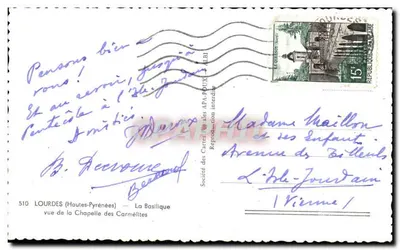 Pensons bien à
vous !
Et au revoir, jusqu'à
Pentecôte à l'Isle Jourdain
Amitiés.
B.
Bernard
510 LOURDES (Hautes-Pyrénées) — La Basilique
vue de la Chapelle des Carmélites
Société des Cartes
Reproduction interdite
15F
Madame Maillon
et ses Enfants
Avenue des Tilleuls
L'Isle-Jourdain
(Vienne)